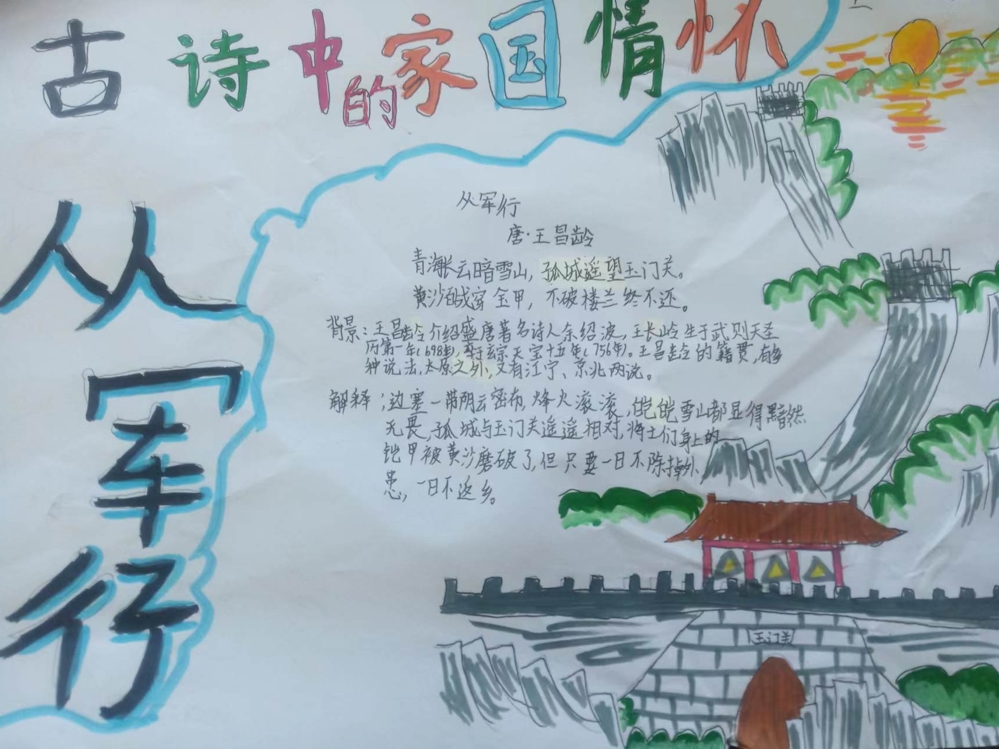 古诗中的家国情怀
从军行
从军行
唐·王昌龄
青海长云暗雪山，孤城遥望玉门关。
黄沙百战穿金甲，不破楼兰终不还。
背景：王昌龄介绍盛唐著名诗人余绍波，王长龄生于武则天圣
历第一年(698年)，卒于综天宝十五年(756年)。王昌龄的籍贯，有
种说法，太原之外，又有江宁、京兆两说。
解释：边塞一带阴云密布，烽火滚滚，皑皑雪山都显得黯然
无畏，孤城与玉门关遥遥相对，将士们身上的
铠甲被黄沙磨破了，但只要一日不除掉外
患，一日不返乡。
玉门关